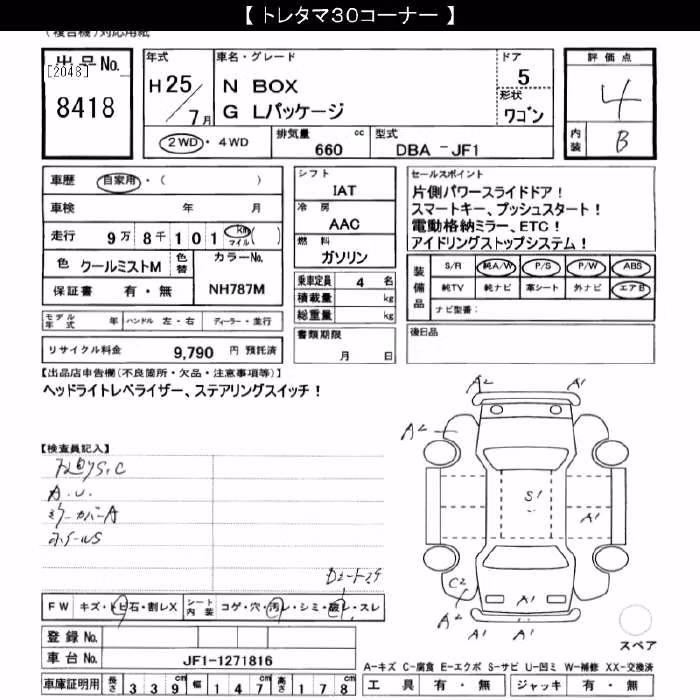 【 トレタマ30コーナー 】
(複合機)対応用紙
出品No.
[2048]
8418
年式
H25/7月
車名・グレード
N BOX
G Lパッケージ
ドア
5
形状
ワゴン
評価点
4
内装
B
2WD・4WD
排気量 660 cc
型式 DBA -JF1
車歴 自家用・( )
車検 年 月
走行 9万 8千 1 0 1 km マイル ( )
色 クールミストM 色替
カラーNo.
NH787M
保証書 有・無
シフト
IAT
冷房
AAC
燃料
ガソリン
乗車定員 4 名
積載量 kg
総重量 kg
書類期限
月 日
セールスポイント
片側パワースライドドア!
スマートキー、プッシュスタート!
電動格納ミラー、ETC!
アイドリングストップシステム!
装備品
S/R 純A/W P/S P/W ABS
純TV 純ナビ 革シート 外ナビ エアB
ナビ型番:
後日品
モデル年式 年 ハンドル 左・右 ディーラー・並行
リサイクル料金 9,790 円 預託済
【出品店申告欄(不良箇所・欠品・注意事項等)】
ヘッドライトレベライザー、ステアリングスイッチ!
【検査員記入】
A.U.
ミラーカバーA
A2 A1
A2
S1
A1
C2
A2
A1 A1
FW キズ・トビ石・割レX
シート内装 コゲ・穴・汚レ・シミ・破レ・スレ
登録No.
車台No. JF1-1271816
車庫証明用 長さ 3 3 9 cm 幅 1 4 7 cm 高さ 1 7 8 cm
スペア
A-キズ C-腐食 E-エクボ S-サビ U-凹ミ W-補修 XX-交換済
工具 有・無 ジャッキ 有・無